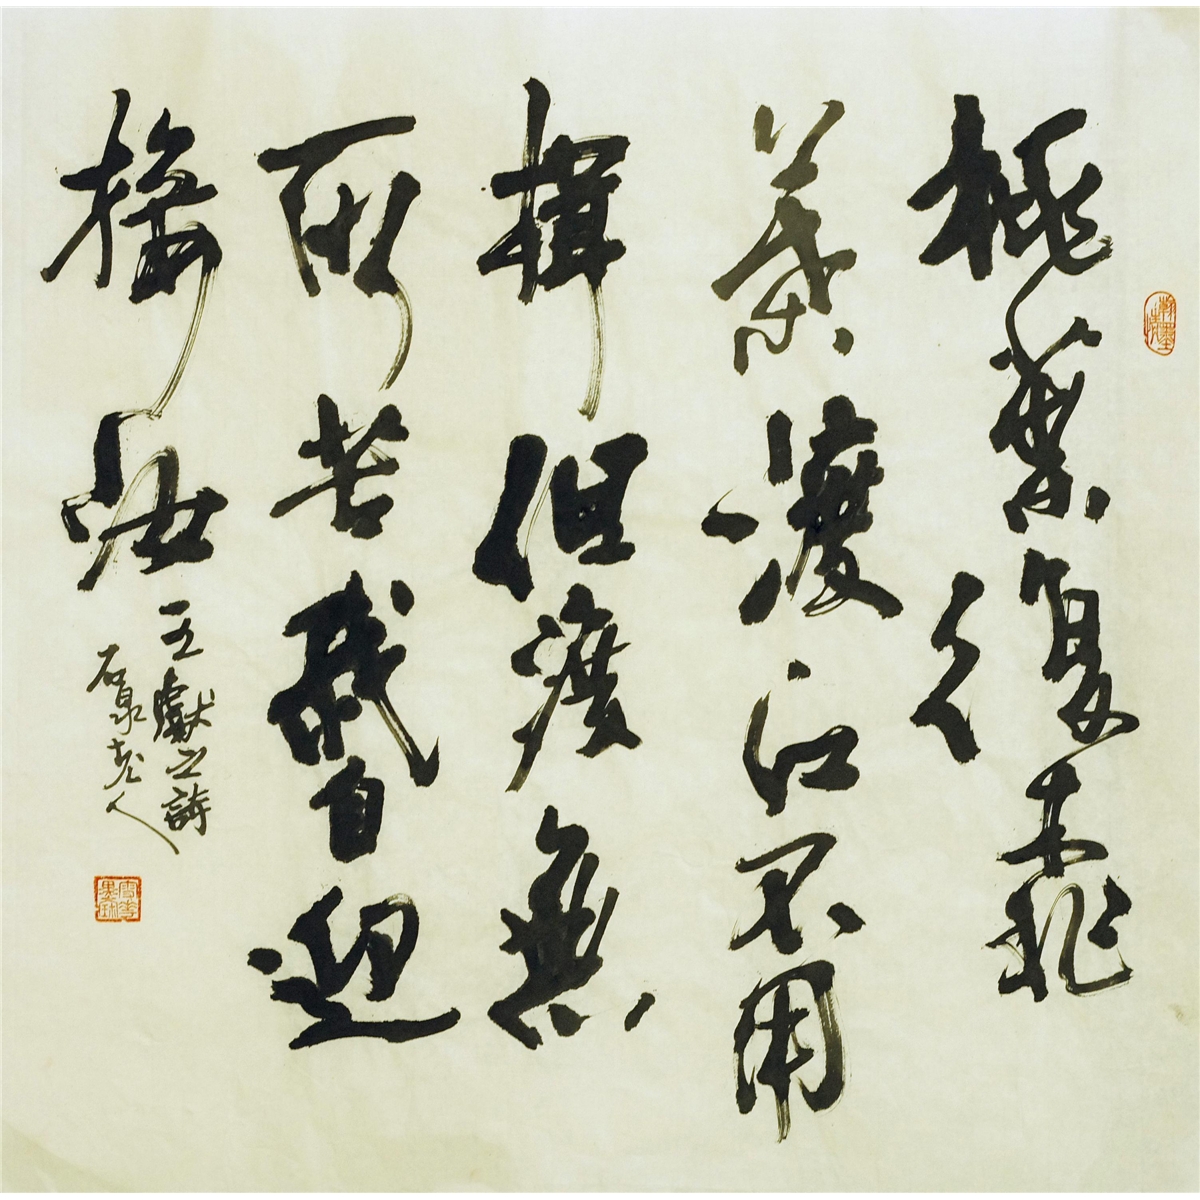 桃葉復桃
葉渡江不用
楫但渡無
所苦我自迎
接汝
王獻之詩
石泉老人